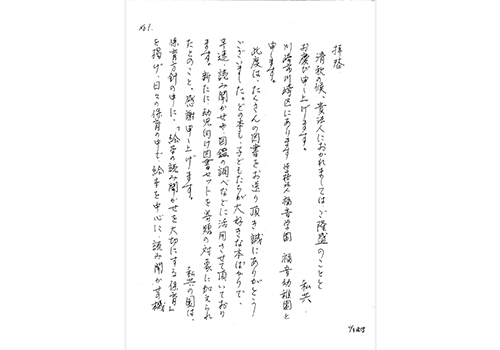 No.1
拝啓
清秋の候、貴法人におかれましては、ご隆盛のことと
お慶び申し上げます。 私共
川崎市川崎区にあります 学校法人 福音学園 福音幼稚園と
申します。
此度は、たくさんの図書をお送り頂き誠にありがとう
ございました。どの本も、子どもたちが大好きな本ばかりで、
早速、読み聞かせや図鑑調べなどに活用させて頂いており
ます。新たに幼児向け図書セットを寄贈の対象に加えられ
たとのこと、感謝申し上げます。 私共の園は、
保育方針の中に、『絵本の読み聞かせを大切にする保育』
を掲げ、日々の保育の中で、絵本を中心に、読み聞かせの機